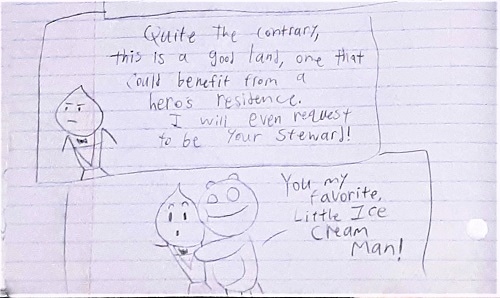 Quite the contrary,
this is a good land, one that
could benefit from a
hero's residence.
I will even request
to be your Steward!
You my
favorite,
Little Ice
Cream
Man!